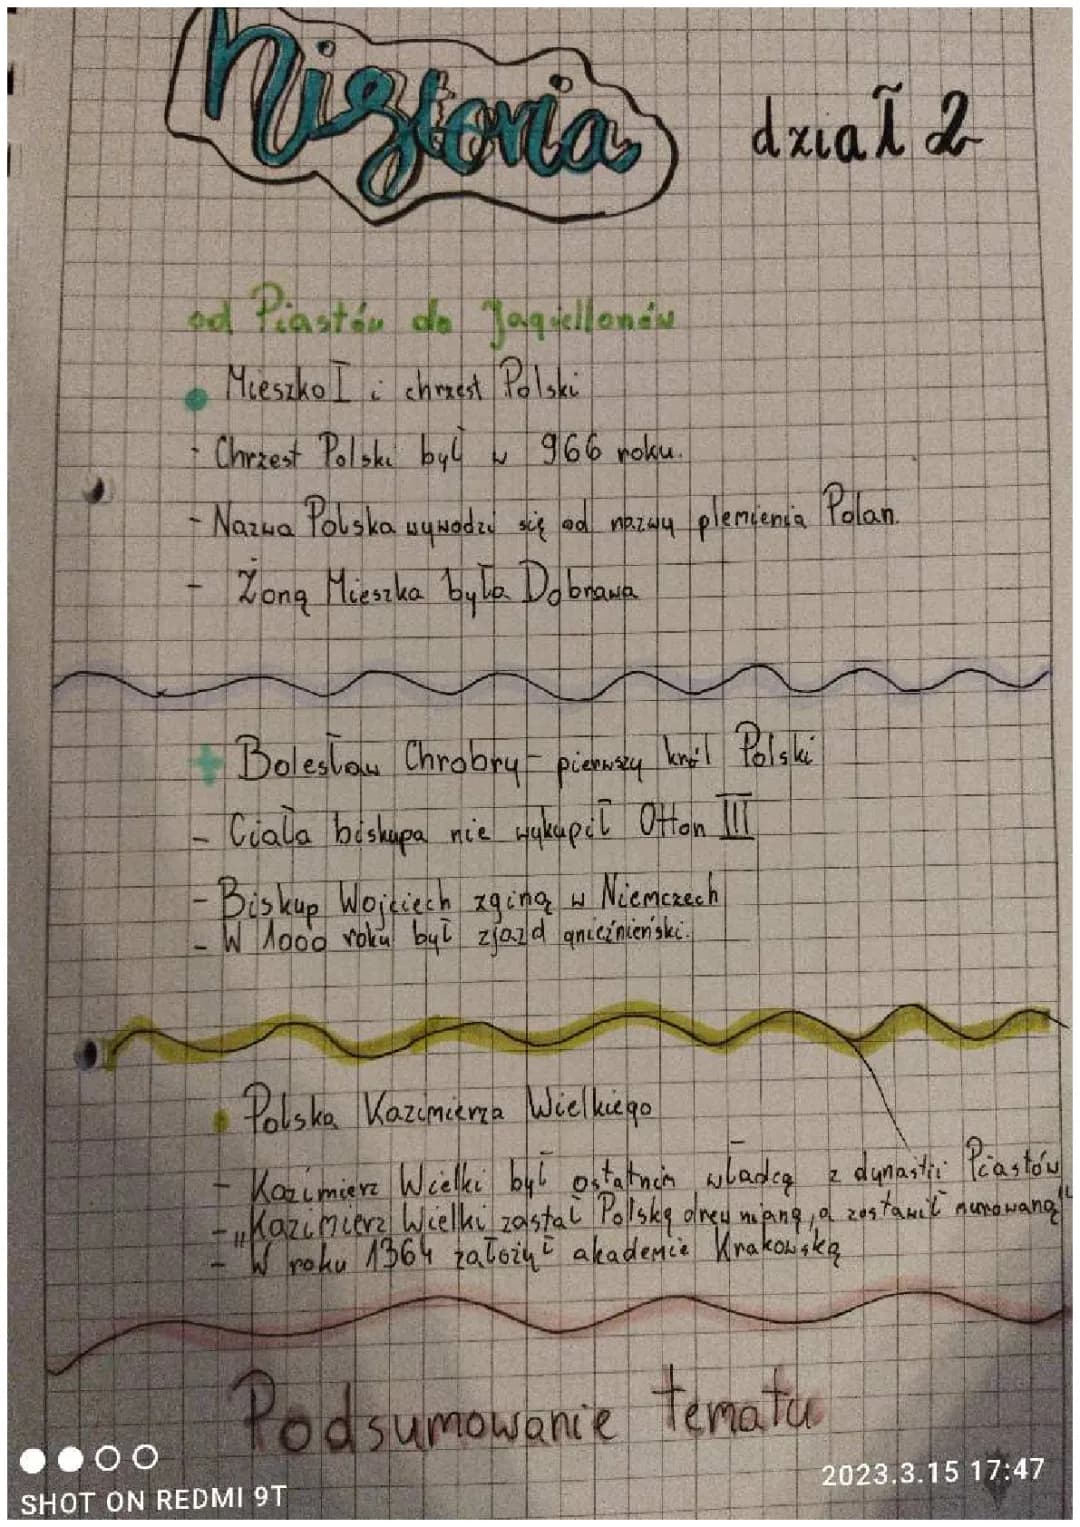 historia dział 2
od Piastów do Jagiellonów
Mieszko I i chrzest Polski
- Chrzest Polski był w 966 roku.
- Nazwa Polska wywodzi się od nazwy plemienia Polan.
- Żoną Mieszka była Dobrawa
Bolesław Chrobry - pierwszy król Polski
- Ciała biskupa nie wykupił Otton III
- Biskup Wojciech zginą w Niemczech
- W 1000 roku był zjazd gnieźnieński.
Polska Kazimierza Wielkiego
- Kazimierz Wielki był ostatnim władcą z dynastii Piastów
- „Kazimierz Wielki zastał Polskę drewnianą, a zostawił murowaną"
- W roku 1364 założył akademie Krakowską
Podsumowanie tematu
SHOT ON REDMI 9T
2023.3.15 17:47